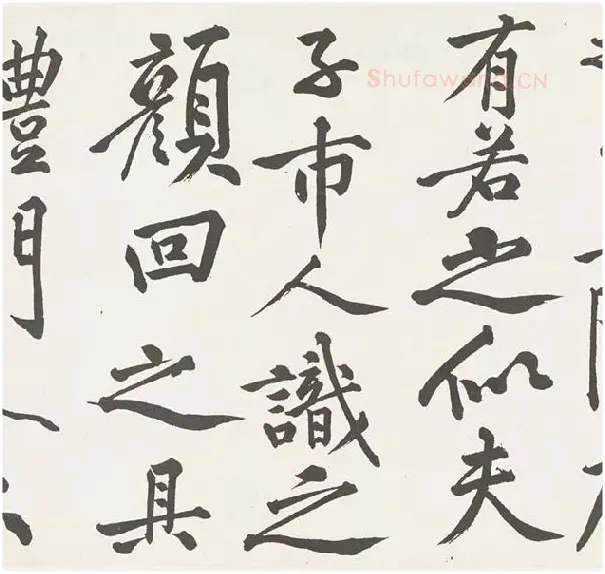 有若之似夫
子市人識之
顏回之具
體門
Shufawang.CN